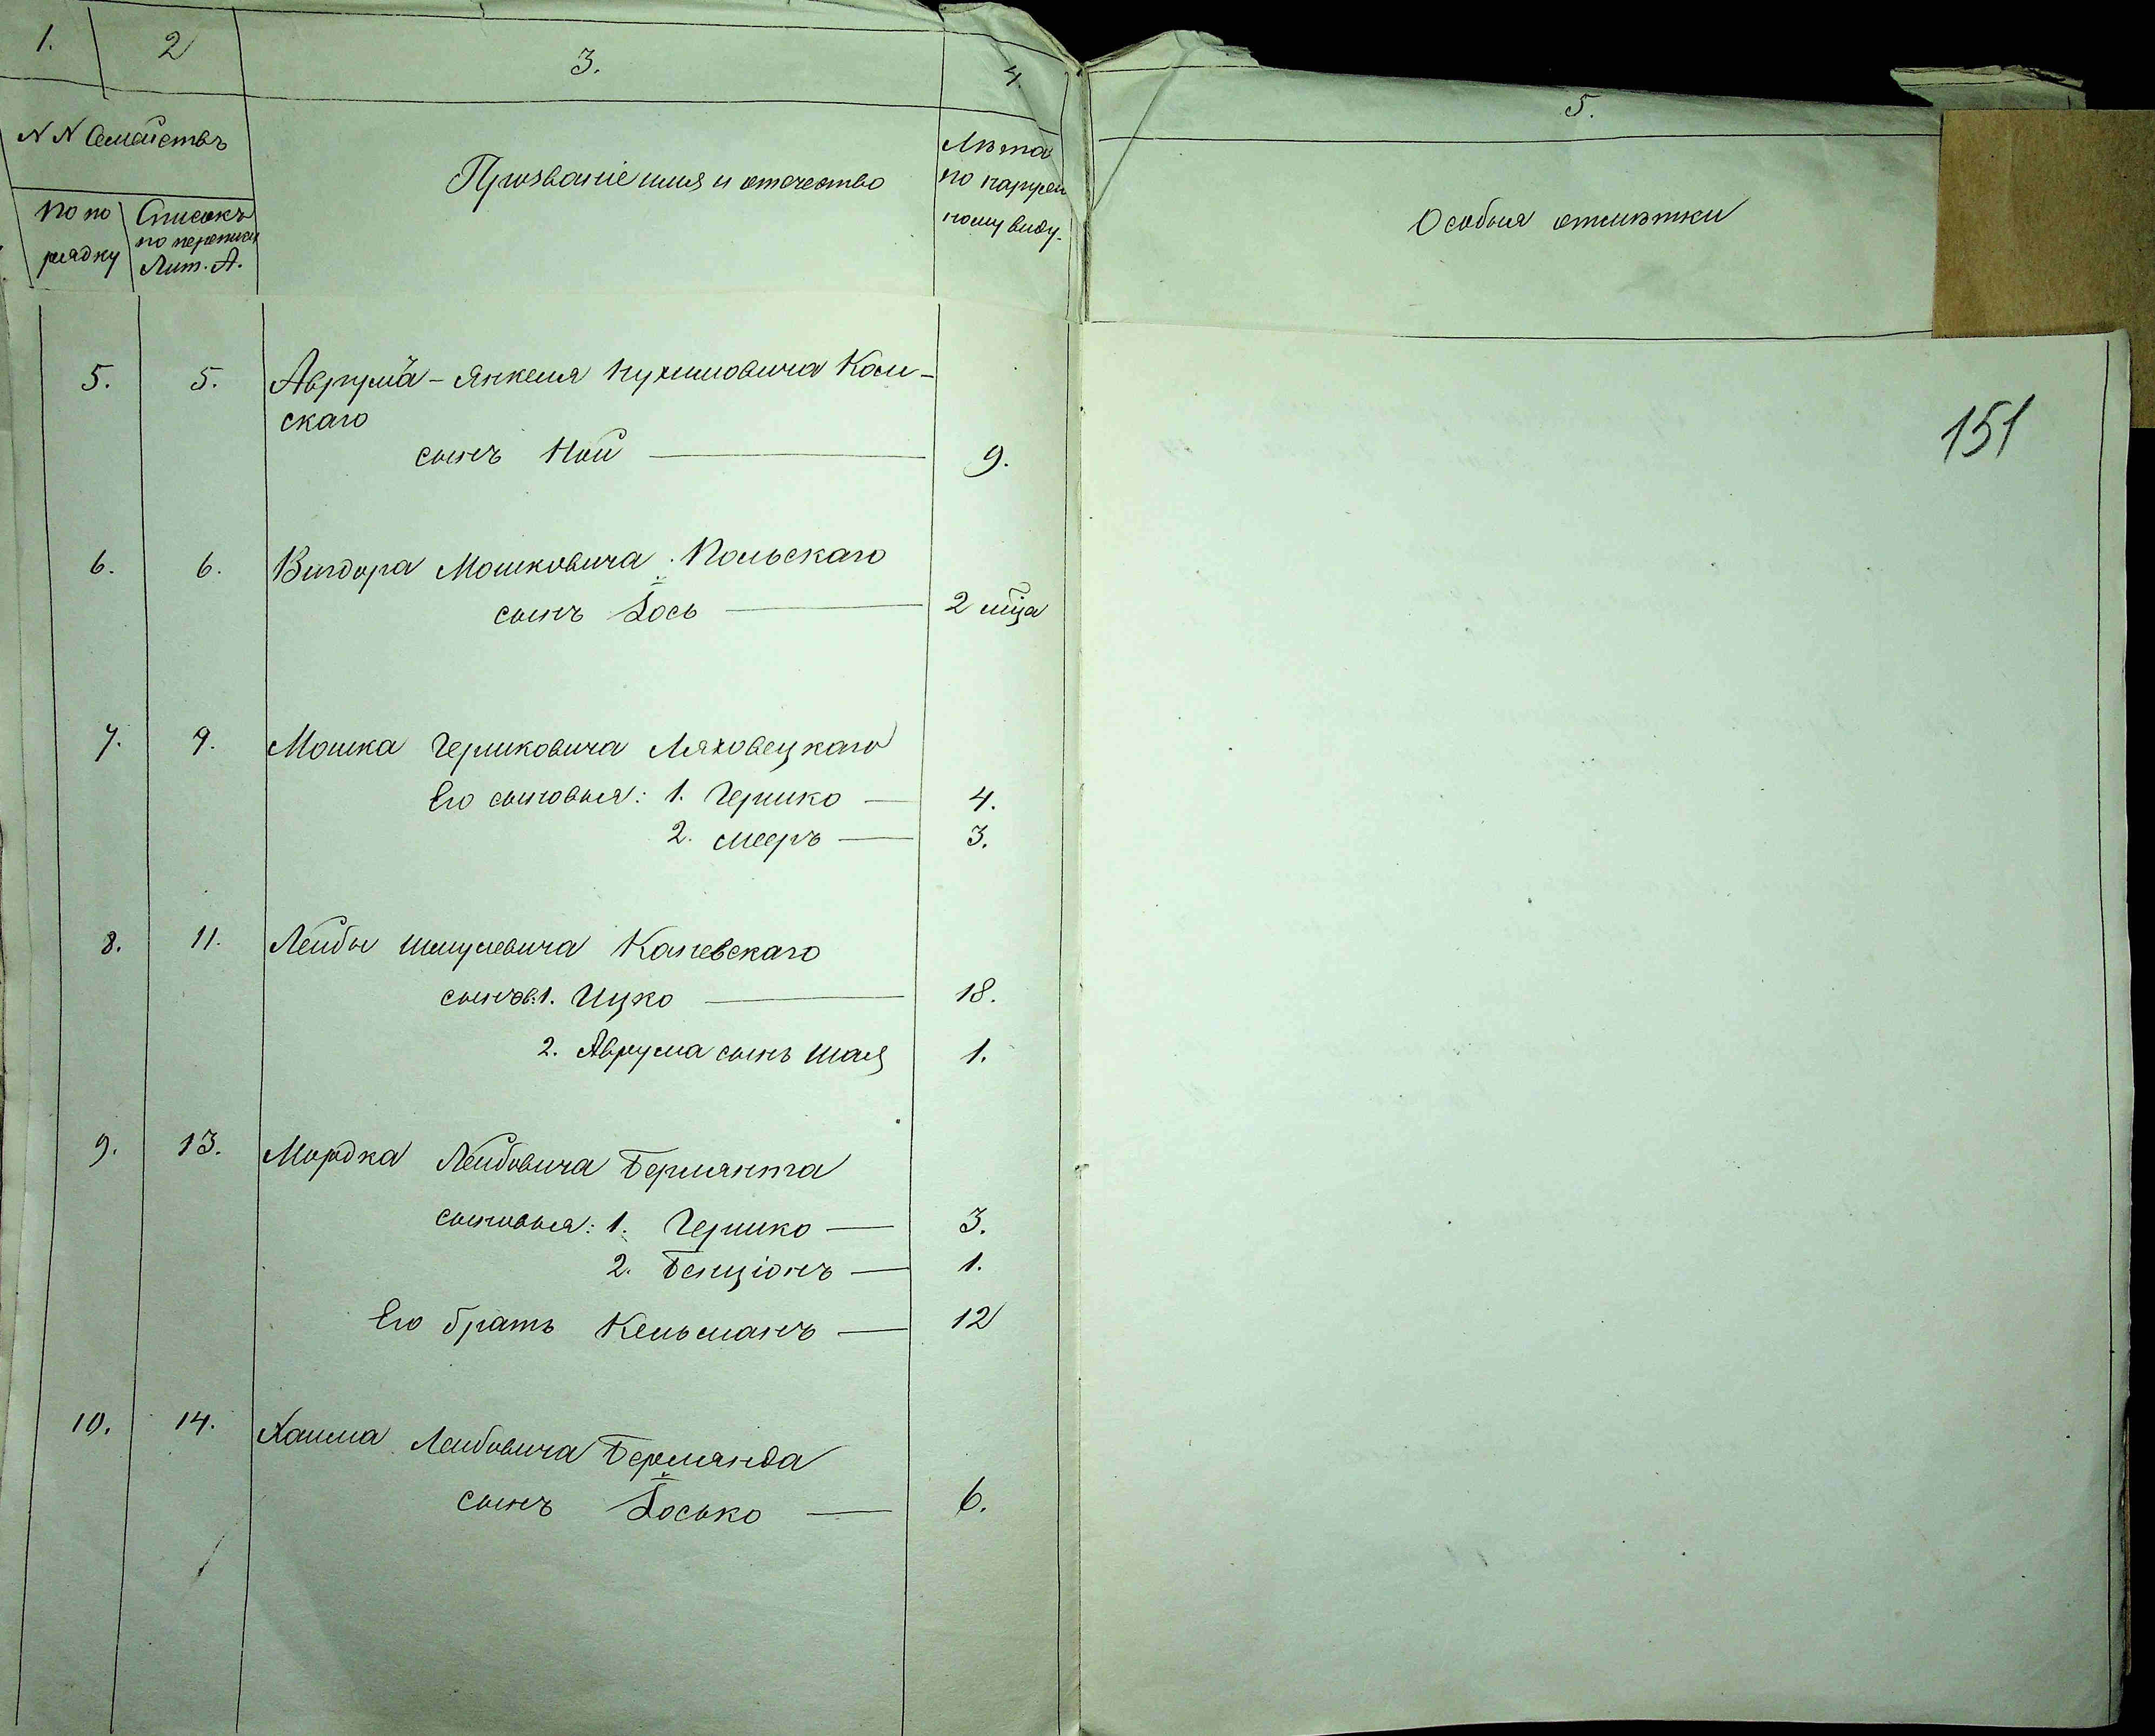 1.
2
3.
4.
5.
NN Семействъ
По по
рядку
Списокъ
по переписи
Лит. А.
Прозваніе имя и отчество
Лѣта
по наруж
ному виду.
Особыя отмѣтки
151
5. 5. Аврумъ-Янкеля Нухимовича Коль-
скаго
сынъ Ной 9.
6. 6. Вигдора Мошковича Польскаго
сынъ Іось 2 мца
7. 9. Мошка Гершковича Ляховецкаго
Его сыновья: 1. Гершко 4.
2. Мееръ 3.
8. 11. Лейбы Шмулевича Каневскаго
сынов: 1. Ицко 18.
2. Аврума сынъ Шая 1.
9. 13. Мордка Лейбовича Бермянта
сыновья: 1. Гершко 3.
2. Бенціонъ 1.
Его братъ Кельманъ 12
10. 14. Хаима Лейбовича Бермянда
сынъ Іосько 6.